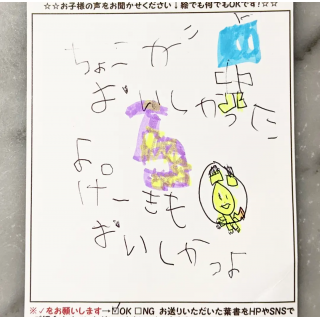 ☆☆お子様の声をお聞かせください！絵でも何でもOKです！☆☆
ちょこが
おいしかった
よ。
けーきも
おいしかつよ
※✓をお願いします→☑OK □NG お送りいただいた葉書をHPやSNSで